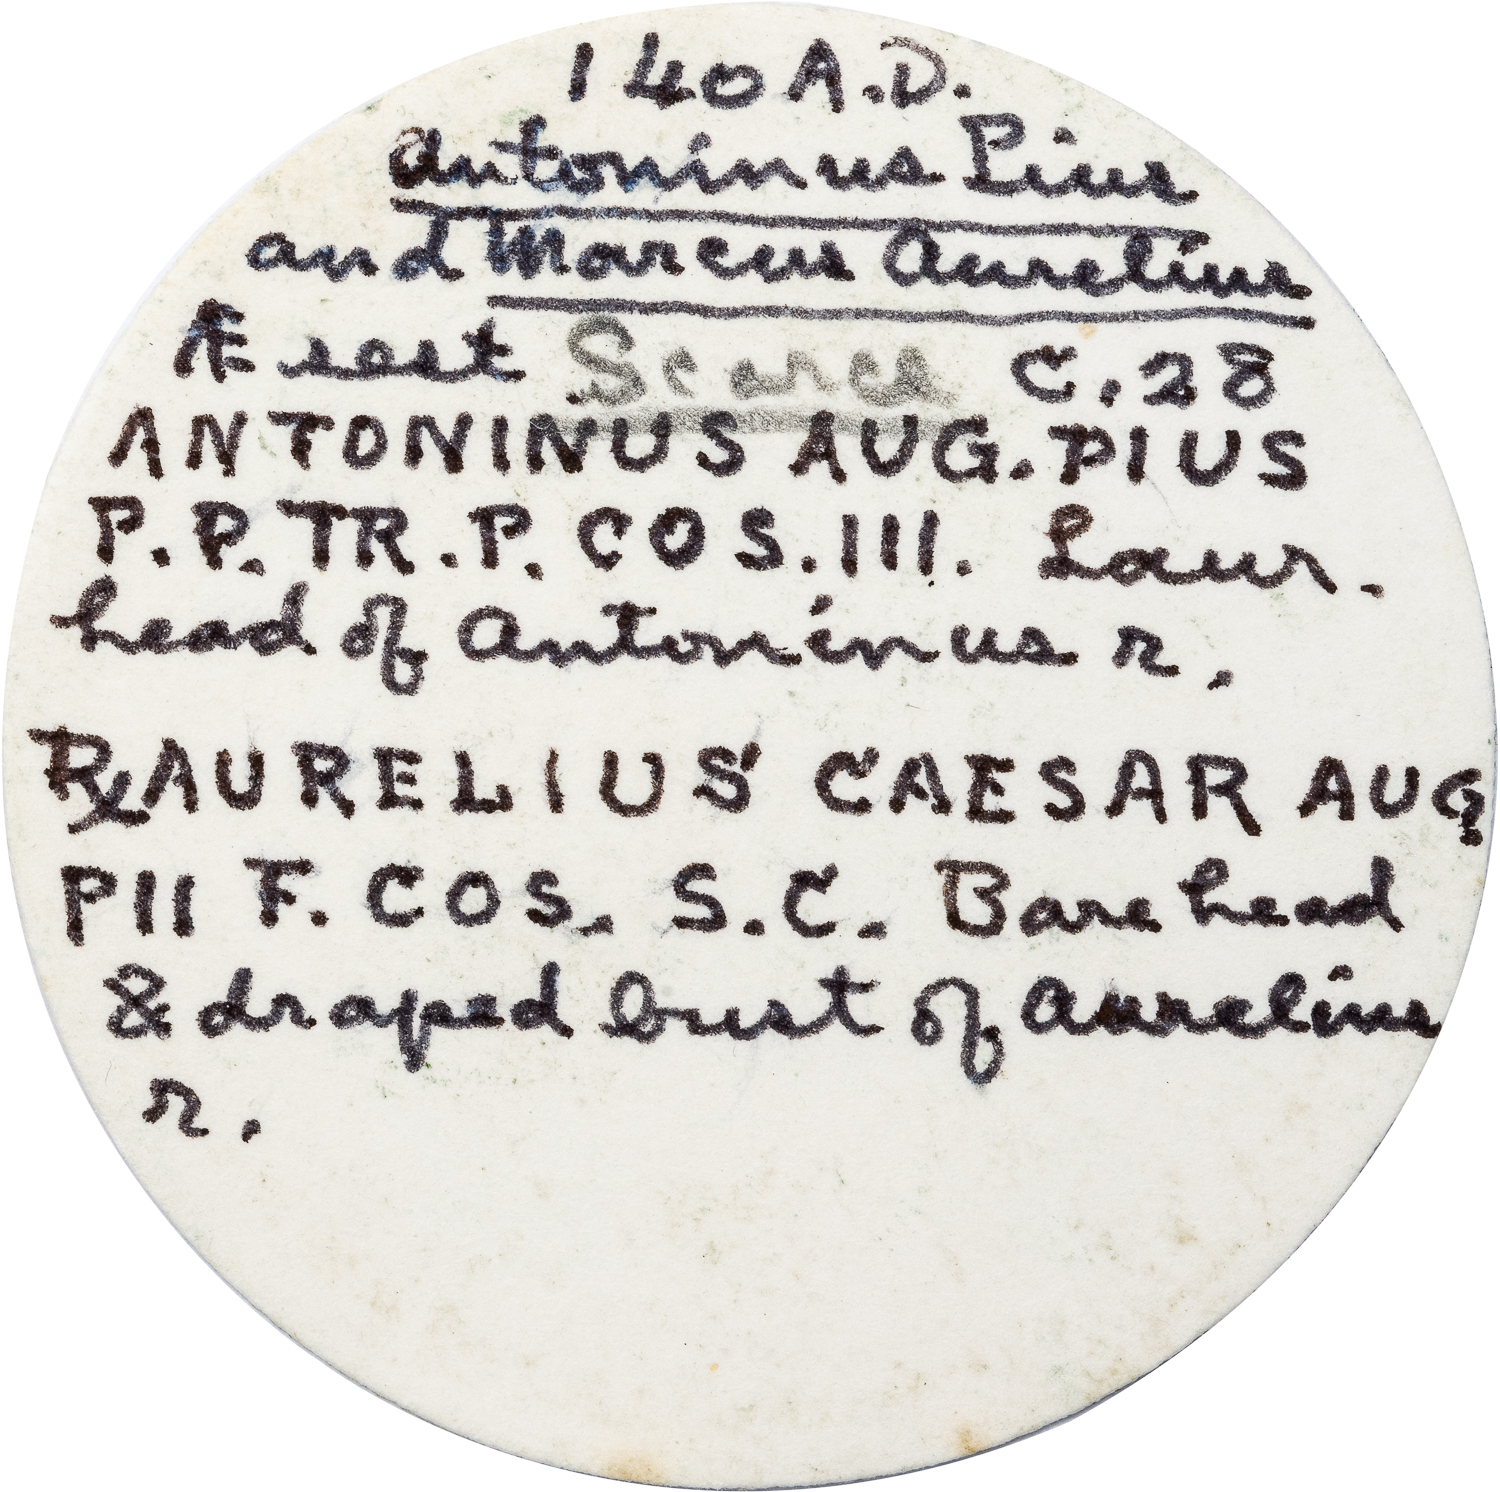 140 A.D.
Antoninus Pius
and Marcus Aurelius
Æ sest Scarce C.28
ANTONINUS AUG. PIUS
P.P. TR.P. COS. III. Laur.
head of Antoninus r.
℞ AURELIUS CAESAR AUG.
PII F. COS. S.C. Bare head
& draped bust of Aurelius
r.